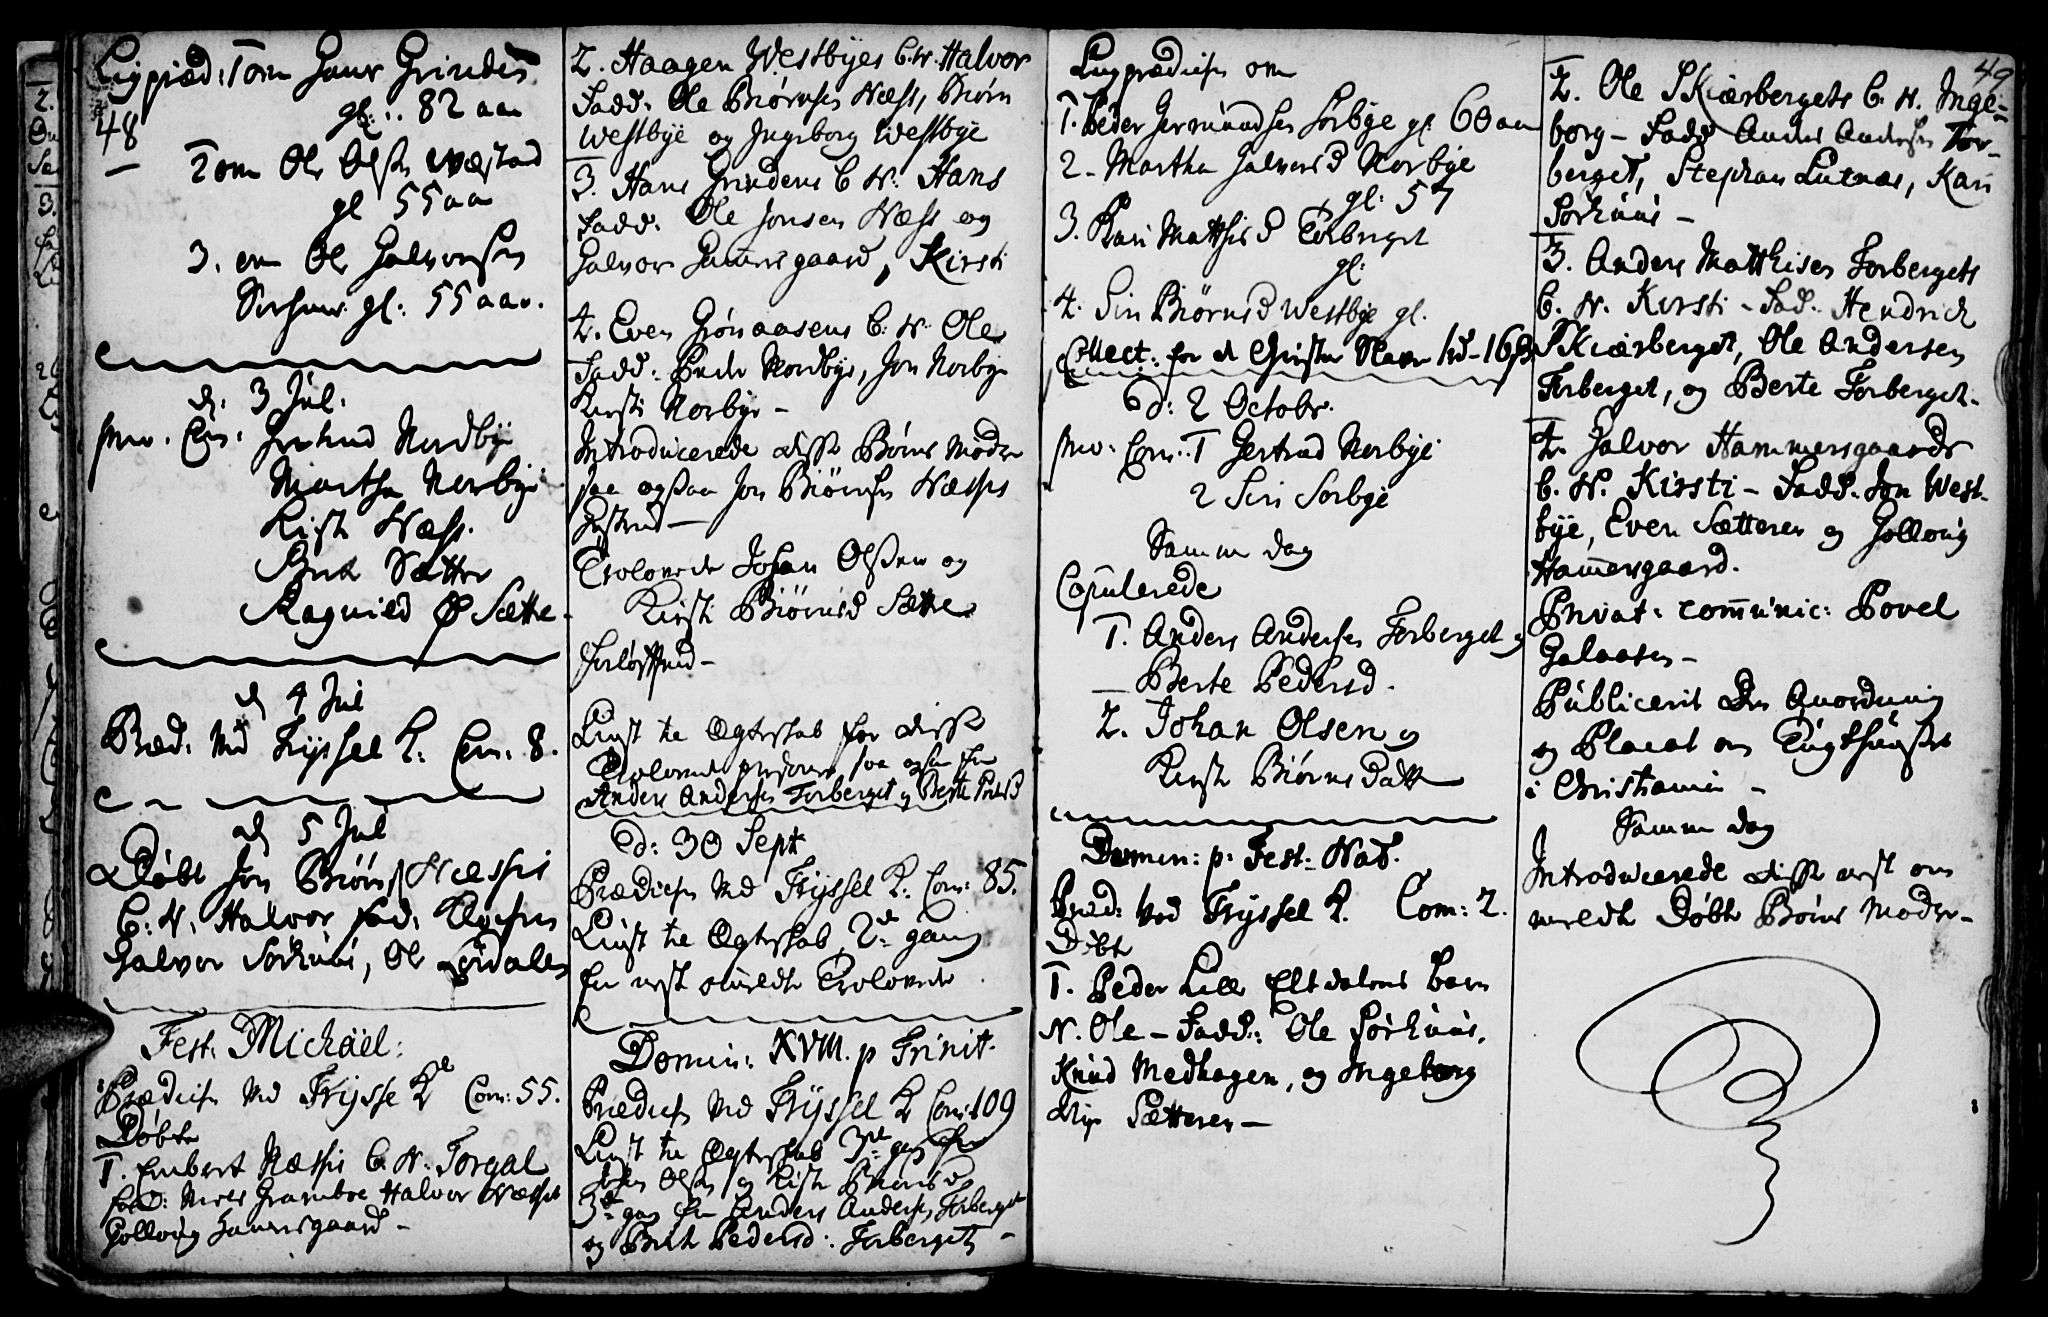 Ligpræd: 1 om Hans Grinden
gl: 82 aar
48
2 om Ole Olsen Næstad
gl 55 aar
3. om Ole Halvorsen
Sørhuus gl: 55 aar.
d: 3 Jul.
priv. Com. Gertrud Nordbye
Martha Norbye
Kirsti Næss.
Berte Sætter
Ragnild Sætte
d 4 Jul
Præd: ved Tryssel K: Com: 8.
d 5 Jul
Døbt Jon Biørns. Næssis
B: N. Halvor fad:
Halvor Sørhuus, Ole
Fest. Michaël:
Prædiken ved Trysse Kl Com: 55.
Døbte
1. Embret Næssis B. N. Torgal
fad: Halvor Næsset
Gollaug Hamersgaard -
2. Haagen Westbyes B. N. Halvor
Fadd. Ole Biørnsen Næss, Biørn
Westbye og Ingeborg Westbye
3. Hans Grindens B N: Hans
Fadd: Ole Jonsen Næss og
Halvor Hamersgaard, Kirsti
4. Even Grønaasens B. N. Ole
Fadd: Peder Nordbye, Jon Norbye
Kirsti Norbye -
Introducerede disse Børns Mødre
saa ogsaa Jon Biørnsen Næssis
Hustrue -
Trolovede Johan Olsen og
Kirsti Biørnsd Sætte
Forløfft
Liust til Ægteskab for disse
Trolovede personer saa ogsaa for
Anders Andersen Forberget og Berte Pedersd
d: 30 Sept
Prædiken ved Tryssel K: Com: 85.
Liust til Ægteskab 2de gang
for nest omeldte Trolovede
Domin: XVIII. p Trinit.
Prædiken ved Tryssel K Com: 109
Liust til Ægteskab 3de gang for
Johan Olsen og Kirsti Biørnsd
3de gang for Anders Andersen Forberget
og Berte Pedersd: Forberget -
Liigprædiken om
1. Peder Germundsen Sorbye gl 60 aar
2. Martha Halvorsd Norbye
gl: 57
3. Kari Matthisd Forberget
gl:
4. Siri Biørnsd Westbye gl.
Collect: for de Christne Slaver 1rd - 16s
d: 2 Octobr.
priv: Com: 1 Gertrud Norbye
2 Siri Sorbye
Samme dag
Copulerede
1. Anders Andersen Forberget og
Berte Pedersd.
2. Johan Olsen og
Kirsti Biørns Datter
Domin: p: Fest: Nat.
Præd: ved Tryssel K. Com: 2.
Døbte
1. Peder Lille Eltdalens barn
N. Ole - Fadd: Ole Sørhuus,
Knud Medhagen, og Ingeborg
Sætteren -
49
2. Ole Skiærbergets B. N. Inge-
borg - Fadd Anders Andersen For-
berget, Stephan Lutnæs, Kari
Sørhuus -
3. Anders Matthisen Forbergets
B. N. Kirsti - Fad. Hendrich
Skiærberget, Ole Andersen
Forberget, og Berte Forberget.
4. Halvor Hammersgaards
B. N. Kirsti - Fadd. Jon West-
bye, Even Sætteren og Gollaug
Hamersgaard.
Privat: communic: Povel
Galaasen -
Publicerit Den Anordning
og Placat om Tugthuuset
i Christiania -
Samme dag
Introducerede disse nest om
meldte Døbte Børns Mødre -